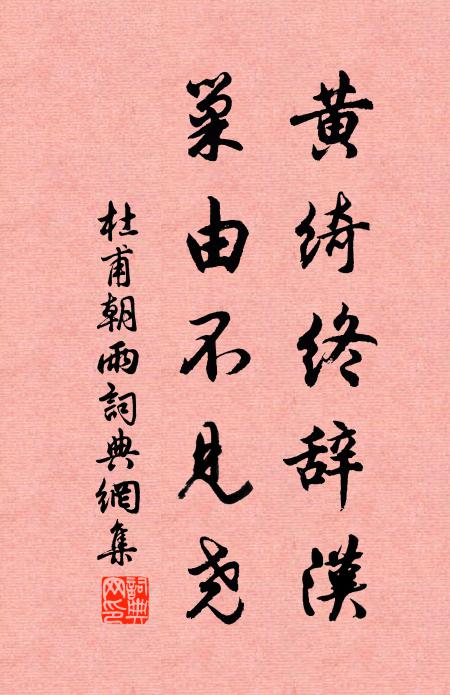 黄绮终辞漢
巢由不见尧
杜甫朝雨詞典網集
詞典网印